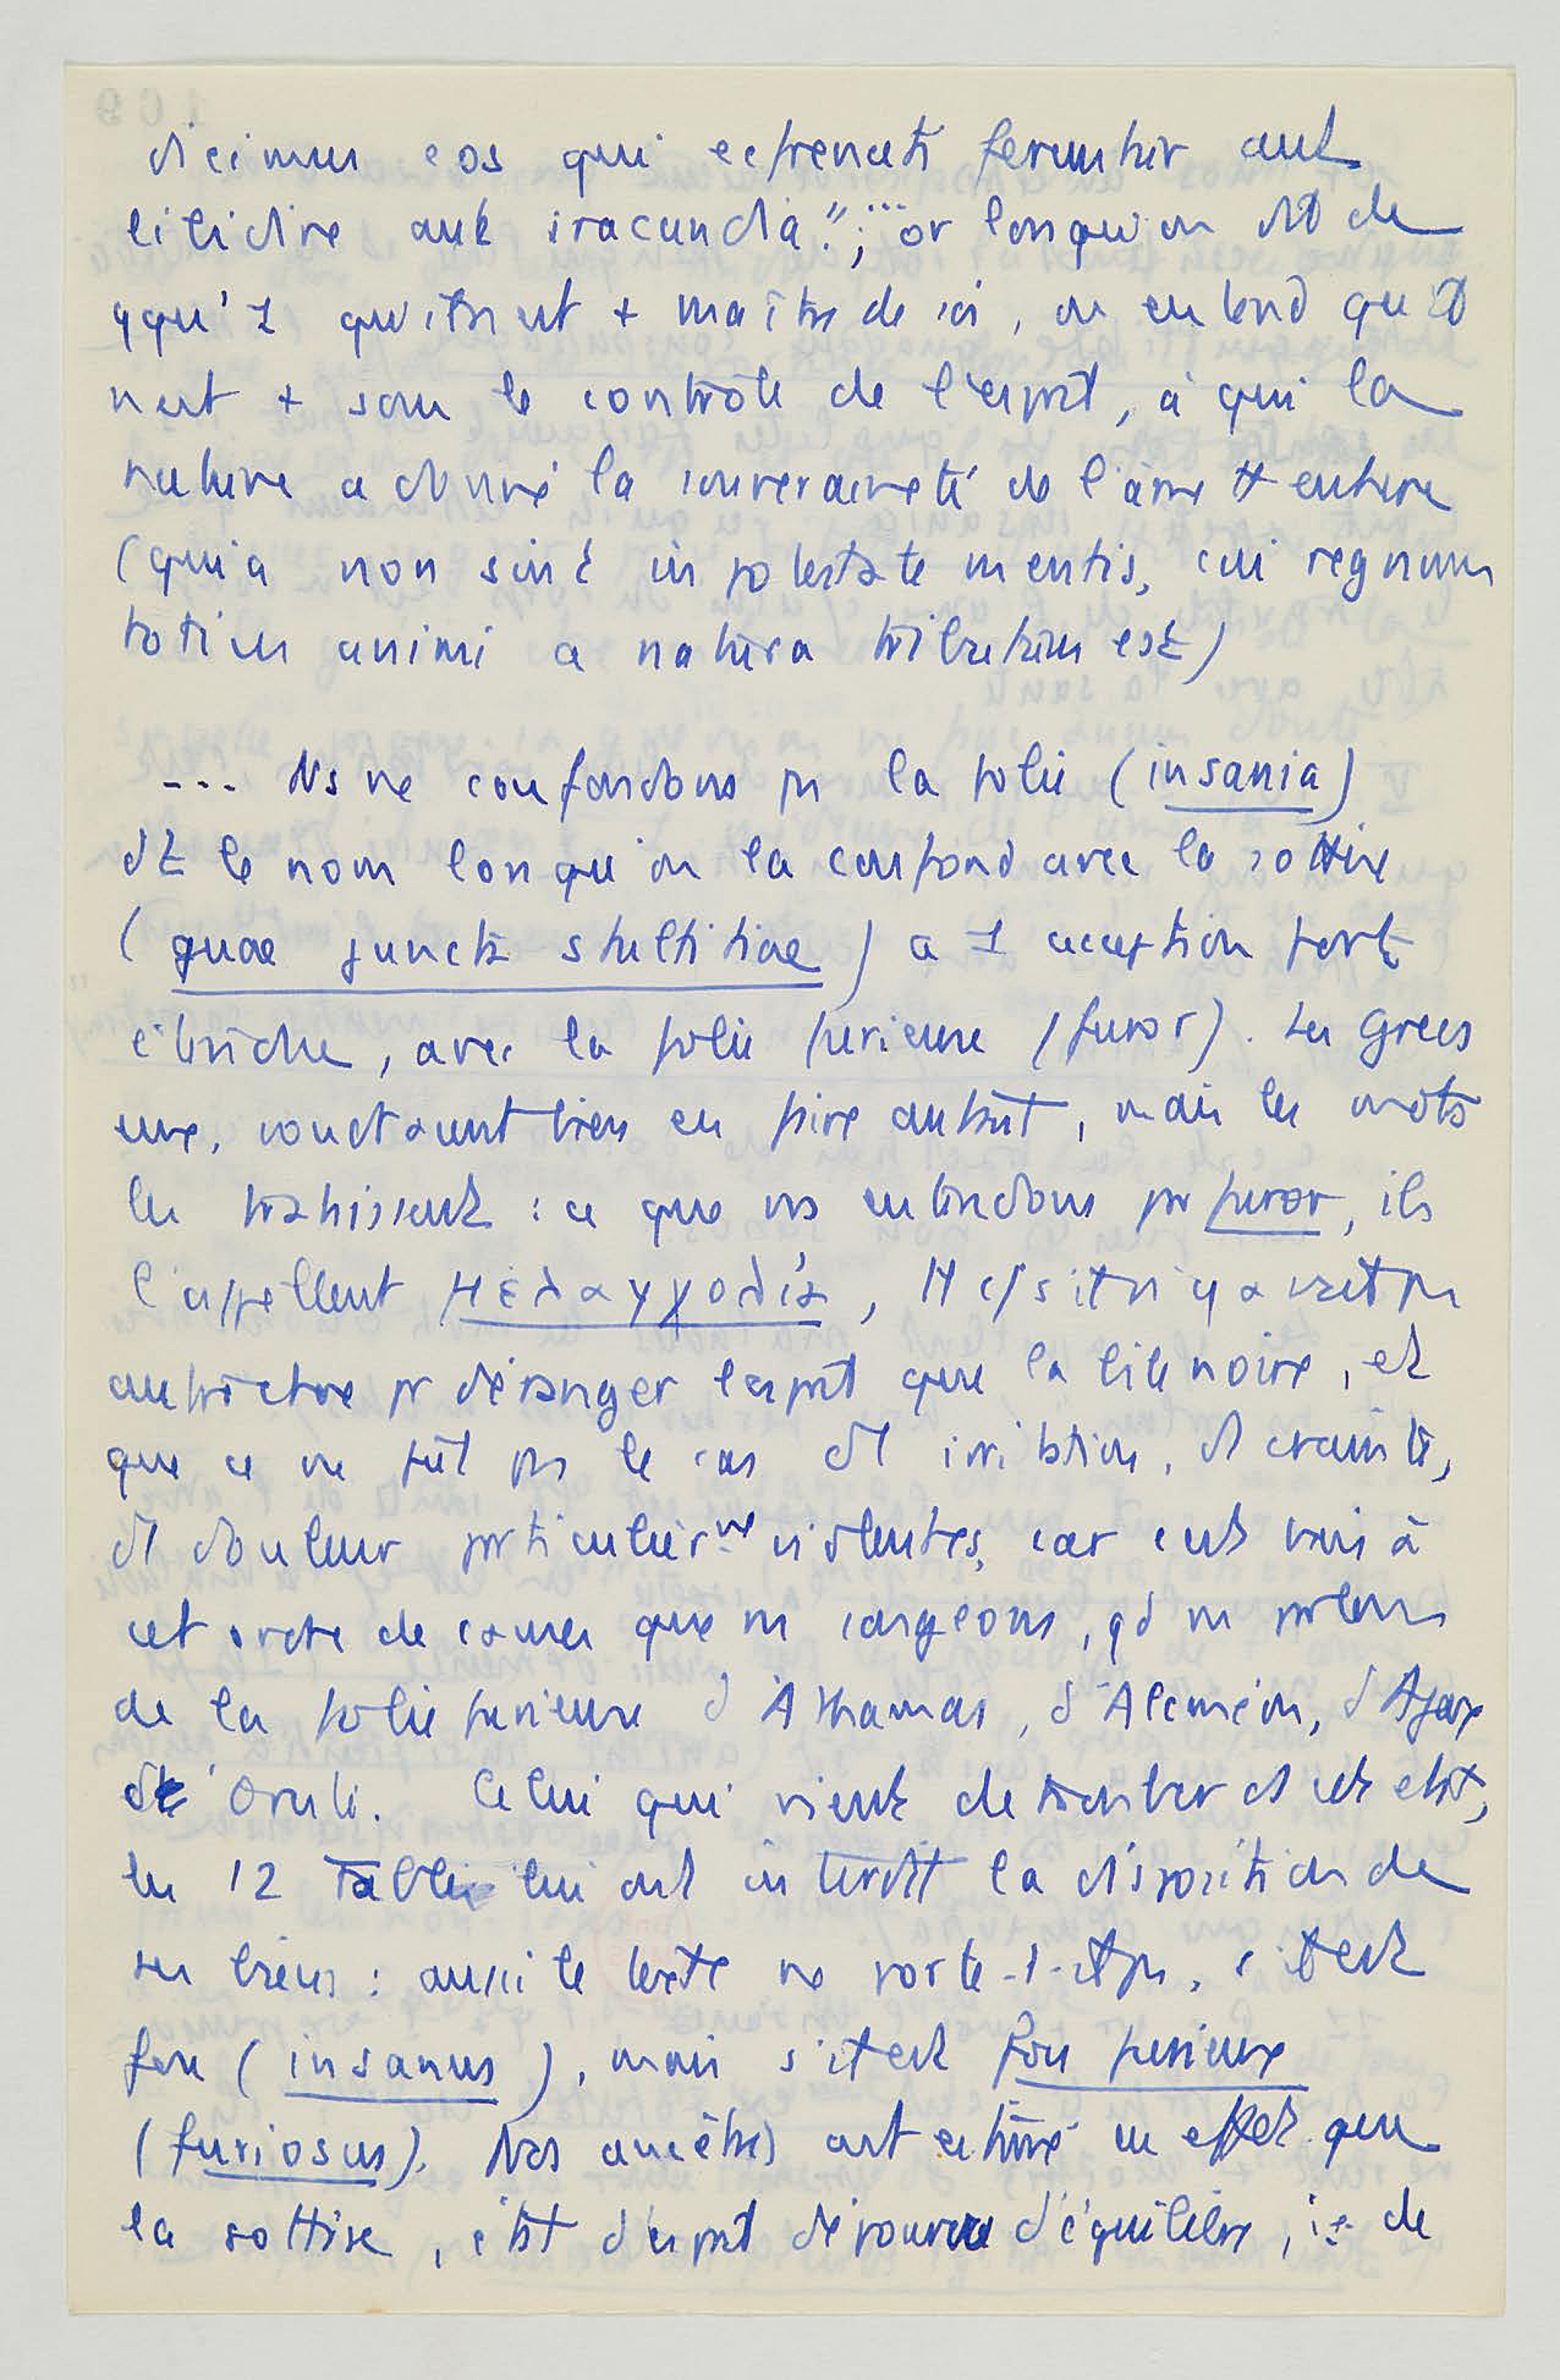 dicimus eos qui ecfrenati feruntur aut
libidine aut iracundia."; ... or lorsqu'on dit de
qqu'1 qu'il n'est + maître de soi, on entend qu'il
n'est + sous le contrôle de l'esprit, à qui la
nature a donné la souveraineté de l'âme tt entière
(quia non sint in potestate mentis, cui regnum
totius animi a natura tributum est)
--- Ns ne confondons pas la folie (insania)
dt le nom lorsqu'on la confond avec la sottise
(quae juncta stultitiae) a 1 acception fort
étendue, avec la folie furieuse (furor). Les Grecs
eux, voudraient bien en faire autant, mais les mots
les trahissent : ce que ns entendons par furor, ils
l'appellent μελαγχολία, tt c/ s'il n'y avait pas
autre chose pr déranger l'esprit que la bile noire, et
que ce ne fût pas le cas ds irritation, ds crainte,
ds douleur particulièrme violentes, car c'est bien à
cet ordre de causes que ns songeons, qd ns parlons
de la folie furieuse d'Athamas, d'Alcméon, d'Ajax
d'Oreste. Celui qui vient de tomber ds cet état,
les 12 Tables lui ont interdit la disposition de
ses biens : aussi le texte ne porte-t-il pas, s'il est
fou (insanus), mais s'il est fou furieux
(furiosus). Nos ancêtres ont estimé en effet que
la sottise, état d'esprit dépourvu d'équilibre, i.e. de